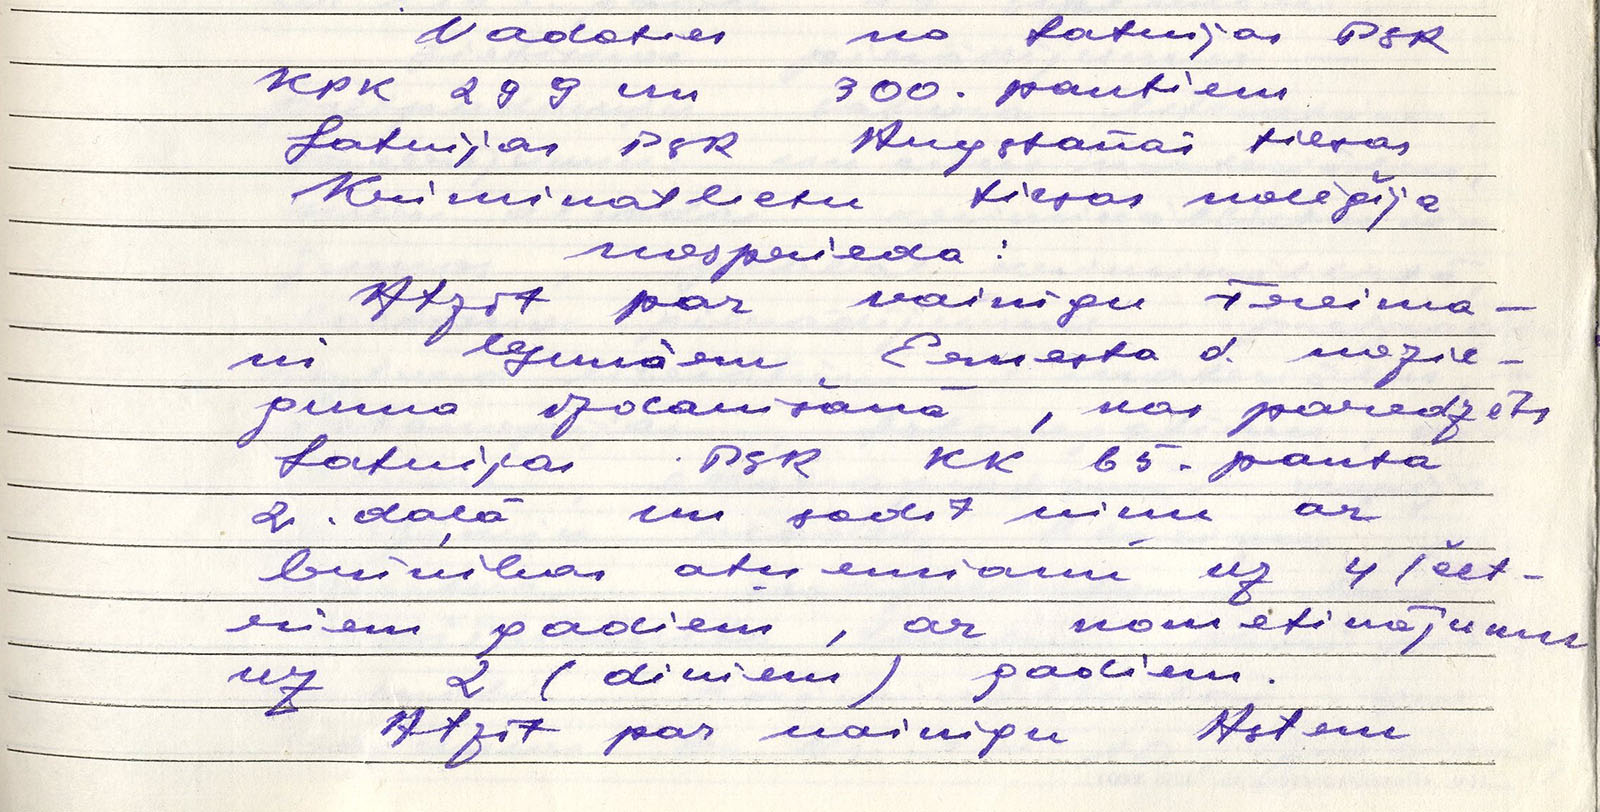 Vadoties no Latvijas PSR
KPK 299 un 300. pantiem
Latvijas PSR Augstākās tiesas
Krimināllietu tiesas kolēģija
nosprieda:
Atzīt par vainīgu Freima-
ni Ernesta d. nozie-
guma izdarīšanā, kas paredzēts
Latvijas PSR KK 65. panta
2. daļā un sodīt viņu ar
brīvības atņemšanu uz 4 /čet-
riem gadiem, ar nometinājumu
uz 2 (diviem) gadiem.
Atzīt par vainīgu